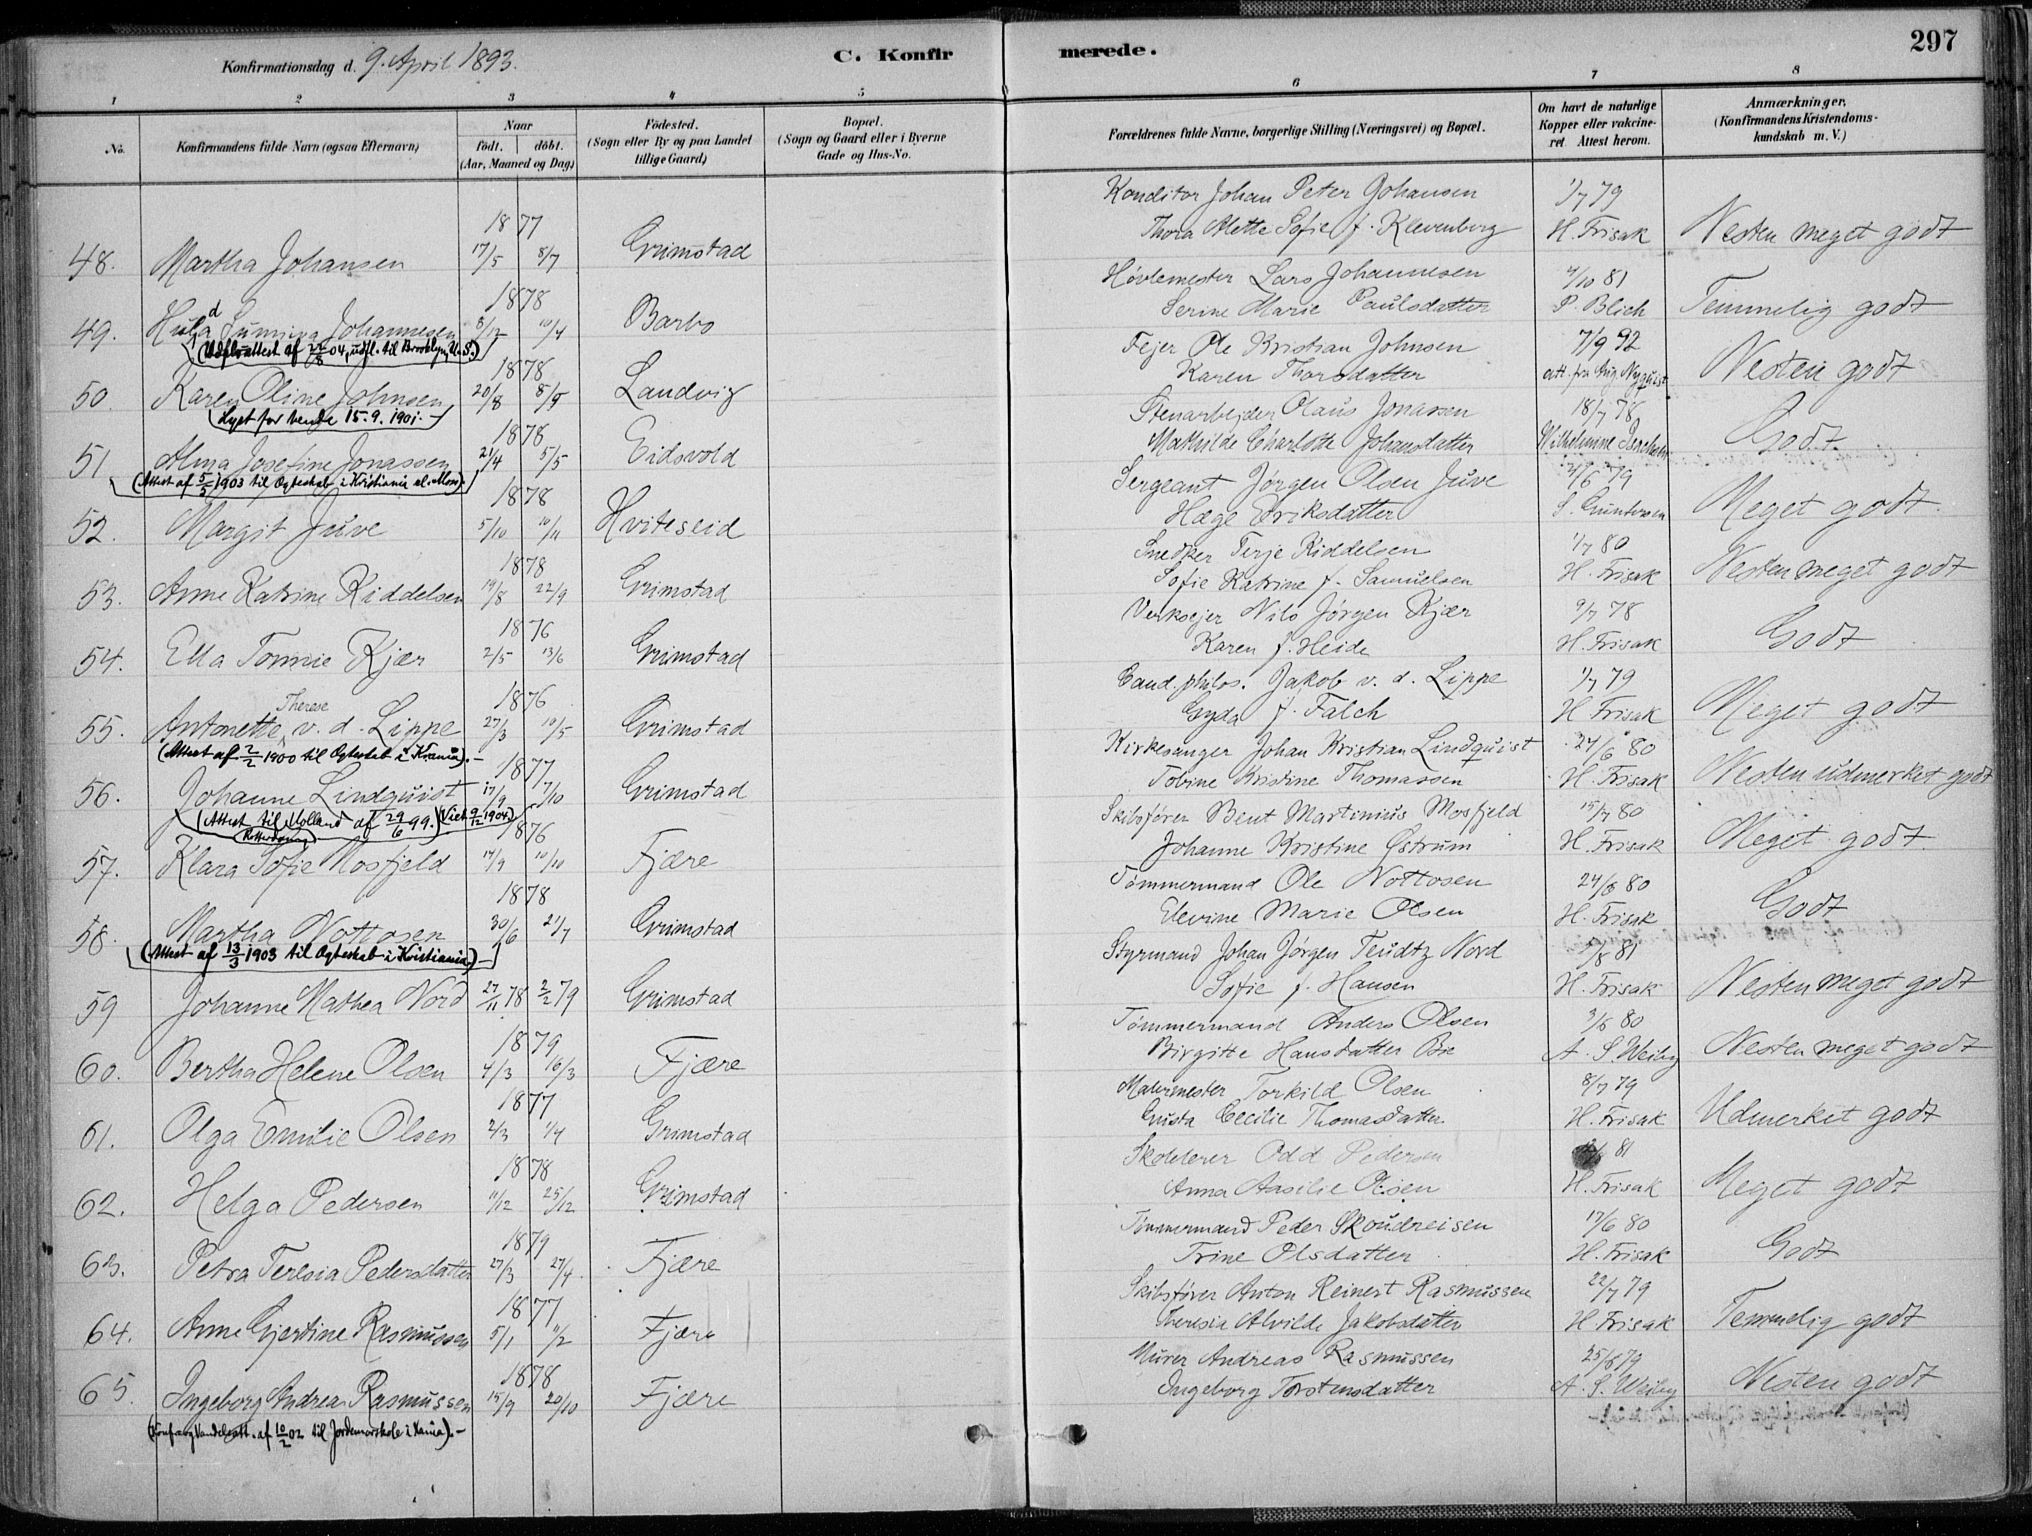 297
Konfirmationsdag d. 9. April 1893.
C. Konfirmerede.
1 2 3 4 5 6 7 8
No.
Konfirmandens fulde Navn (ogsaa Efternavn)
Naar
født. døbt.
(Aar, Maaned og Dag)
Födested.
(Sogn eller By og paa Landet
tillige Gaard)
Bopæl.
(Sogn og Gaard eller i Byerne
Gade og Hus-No.
Forældrenes fulde Navne, borgerlige Stilling (Næringsvei) og Bopæl.
Om havt de naturlige
Kopper eller vakcine-
ret. Attest herom.
Anmærkninger,
(Konfirmandens Kristendoms-
kundskab m. V.)
1877
Konditor Johan Peter Johansen 1/7 79
48. Martha Johansen 17/5 8/7 Grimstad
Thora Mette Sofie f. Klevenberg H. Frisak Nesten meget godt
1878
Høvlemester Lars Johannesen 4/10 81
49. Hulda Sumiva Johannesen 8/12 10/4 Barbo
Serine Marie Paulsdatter P. Blich Temmelig godt
(Udflvattest af 22/8 04, udfl. til Brooklyn, U.S.)
1878
Fejer Ole Kristian Johnsen 7/9 92
50. Karen Oline Johnsen 20/8 8/9 Landvig
Karen Thorsdatter att. fra Aug. Nyquist Nesten godt
(Lyst for hende 15.9.1901.-)
1878
Stenarbejder Olaus Jonassen 18/7 78
51 Alma Josefine Jonassen 21/4 5/5 Eidsvold
Mathilde Charlotte Johansdatter Godt
(Attest af 5/5 1903 til Ægteskab i Kristiania el. Moss)
1878
Sergeant Jørgen Olsen Juve 21/6 79
52. Margit Juve 5/10 10/11 Hviteseid
Hæge Eriksdatter S. Guntersen Meget godt.
1878
Snedker Terje Kiddelsen 1/7 80
53. Anne Katrine Kiddelsen 19/8 22/9 Grimstad
Sofie Katrine f. Samuelsen H. Frisak Nesten meget godt
1876
Verksejer Nils Jørgen Kjær 9/7 78
54. Ella Tonnie Kjær 2/5 13/6 Grimstad
Karen f. Heide H. Frisak Godt
1876
Cand. philos. Jakob v. d. Lippe 1/7 79
55. Antonette Therese v. d. Lippe 27/3 10/5 Grimstad
Gyda f. Falch H Frisak Meget godt
(Attest af 2/2 1900 til Ægteskab i Krania).-
1877
Kirkesanger Johan Kristian Lindquist 24/6 80
56. Johanne Lindquist 17/9 17/10 Grimstad
Tobine Kristine Thomassen H. Frisak Nesten udmerket godt
(Attest til Holland af 29/6 99.) (Viet 9/12 1904)
Rotterdam
1876
Skibsfører Bent Martinius Mosfjeld 15/7 80
57. Klara Sofie Mosfjeld 14/9 10/10 Fjære
Johanne Kristine Østrum H. Frisak Meget godt
1878
Tømmermand Ole Nottosen 24/6 80
58. Martha Nottosen 30/6 21/7 Grimstad
Elevine Marie Olsen H. Frisak Godt
(Attest af 13/3 1903 til Ægteskab i Kristiania)-
Styrmand Johan Jørgen Teudtz Nord 5/8 81
59 Johanne Mathea Nord 27/11 78 2/2 79 Grimstad
Sofie f. Hansen H. Frisak Nesten meget godt
1879
Tømmermand Anders Olsen 3/6 80
60. Bertha Helene Olsen 4/3 16/3 Fjære
Birgitte Hansdatter Bie A. S. Weiby Nesten meget godt
1877
Malermester Torkild Olsen 8/7 79
61. Olga Emilie Olsen 2/3 1/4 Grimstad
Gusta Cecilie Thomasdatter H. Frisak Udmerket godt
1878
Skolelerer Odd Pedersen 81
62. Helga Pedersen 11/12 25/12 Grimstad
Anna Aasilie Olsen H. Frisak Meget godt
1879
Tømmermand Peder Skoudreisen 17/6 80
63. Petra Teresia Pedersdatter 27/3 27/4 Fjære
Trine Olsdatter H. Frisak Godt
1877
Skibsfører Anton Reinert Rasmussen 22/7 79
64. Anne Gjertine Rasmussen 5/1 11/2 Fjære
Theresia Alvilde Jakobsdatter H Frisak Temmelig godt
1878
Murer Andreas Rasmussen 25/8 79
65. Ingeborg Andrea Rasmussen 15/9 20/10 Fjære
Ingeborg Torstensdatter A. S. Weiby Nesten godt
(Konf. og Vandelsatt. af 10/2 02 til Jordemorskole i Krania).-